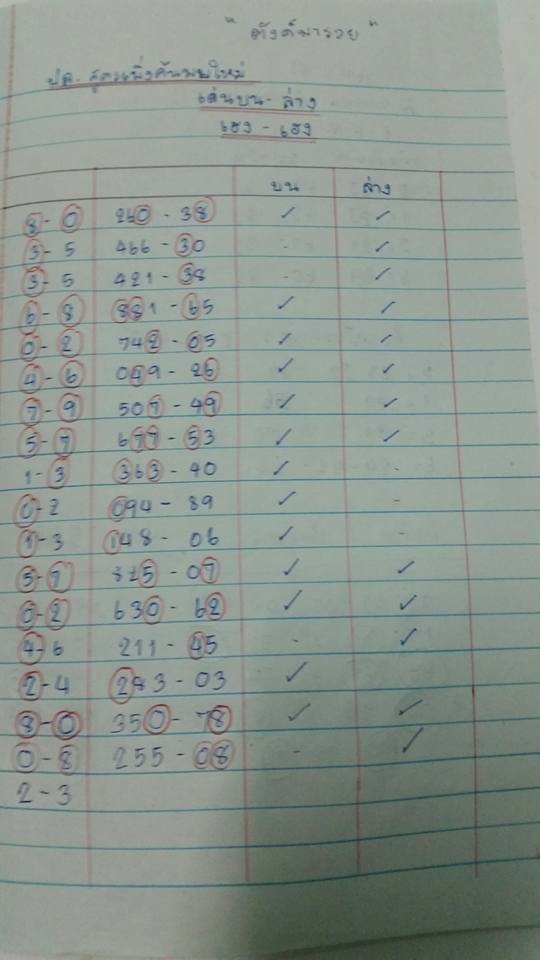 "ตังค์มารวย"
ปล. สูตรเพิ่งค้นพบใหม่
เด่นบน - ล่าง
เฮง - เฮง
บน ล่าง
8 - 0 260 - 38 ✓ ✓
3 - 5 466 - 30 - ✓
3 - 5 421 - 38 - ✓
6 - 8 881 - 65 ✓ ✓
0 - 2 742 - 05 ✓ ✓
4 - 6 049 - 26 ✓ ✓
7 - 9 507 - 49 ✓ ✓
5 - 7 677 - 53 ✓ ✓
1 - 3 363 - 40 ✓ -
0 - 2 094 - 89 ✓ -
1 - 3 148 - 06 ✓ -
5 - 7 825 - 07 ✓ ✓
0 - 2 630 - 62 ✓ ✓
4 - 6 211 - 45 - ✓
2 - 4 283 - 03 ✓
8 - 0 350 - 78 ✓ ✓
0 - 8 255 - 08 - ✓
2 - 3